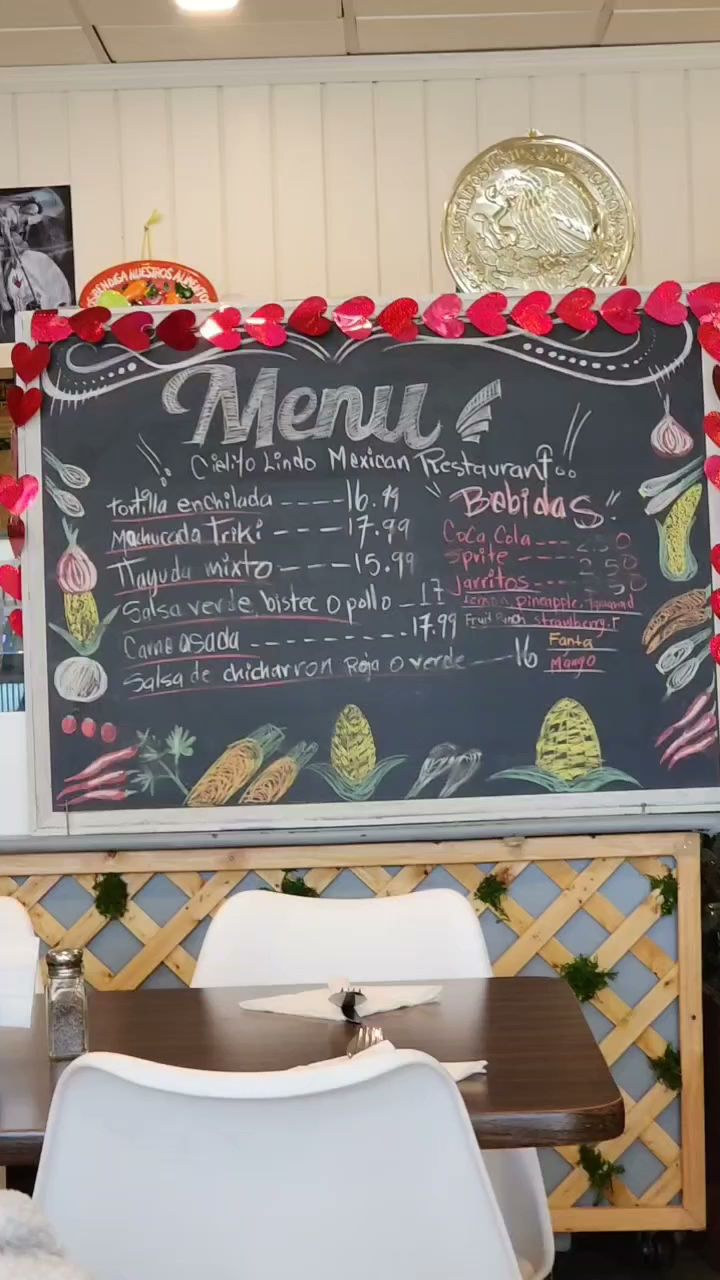 BENDIGA NUESTROS ALIMENTOS
ESTADOS UNIDOS MEXICANOS
Menu
Cielito Lindo Mexican Restaurant
tortilla enchilada ---- 16.99
Machucada Triki ---- 17.99
Tlayuda mixto ---- 15.99
Salsa verde, bistec o pollo -- 17
Carne asada ---------- 17.99
Salsa de chicharron Roja o verde ---- 16
"Bebidas"
Coca Cola --- 2.50
Sprite ---- 2.50
Jarritos --- 3.50
Pineapple, Tamarind
Fruit Punch strawberry
Fanta
Mango